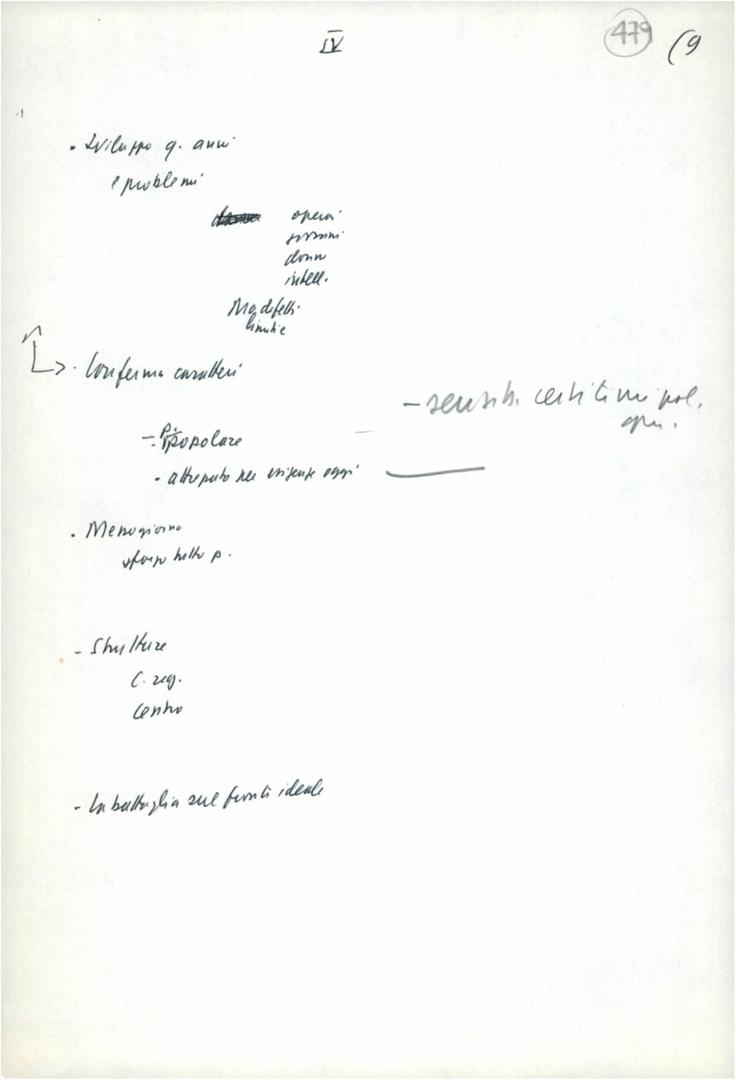 IV
479
(9
· Sviluppo q. anni
e problemi
operai
giovani
donne
intell.
Ma difetti
limiti e
· Conferma caratteri
- sensib. ceti
pol.
- P. popolare
· attrezzato per esigenze oggi
· Mezzogiorno
sforzo tutto p.
- Strutture
C. reg.
Centro
- La battaglia sul fronte ideale